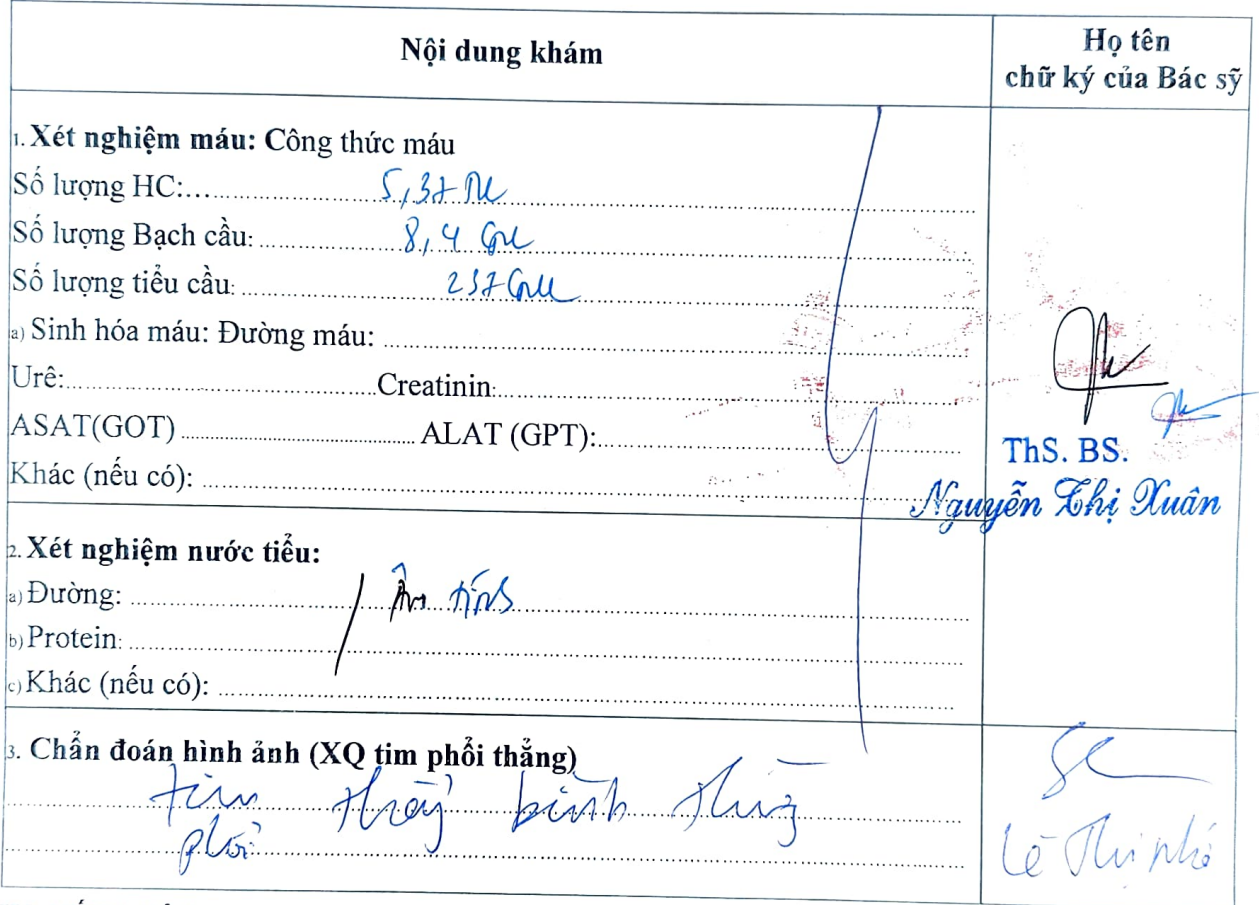 Nội dung khám
Họ tên
chữ ký của Bác sỹ
1. Xét nghiệm máu: Công thức máu
Số lượng HC: 5,37
Số lượng Bạch cầu: 8,4
Số lượng tiểu cầu: 237
a) Sinh hóa máu: Đường máu:
Urê: Creatinin:
ASAT(GOT) ALAT (GPT):
Khác (nếu có):
ThS. BS.
Nguyễn Thị Xuân
2. Xét nghiệm nước tiểu:
a) Đường: Âm tính
b) Protein:
c) Khác (nếu có):
3. Chẩn đoán hình ảnh (XQ tim phổi thẳng)
tim thấy bình thường
phổi
Lê Thị